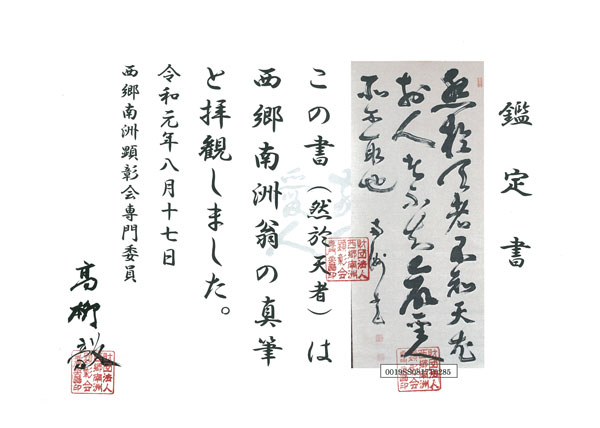 鑑定書
於天者不知天
所不取也
この書(然於天者)は
西郷南洲翁の真筆
と拝観しました。
令和元年八月十七日
西郷南洲顕彰会専門委員
高柳毅
財団法人
西郷南洲
顕彰会